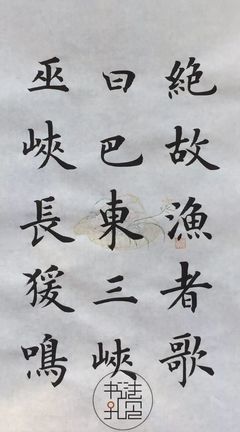 絶故漁者歌
曰巴東三峽
巫峽長猨鳴